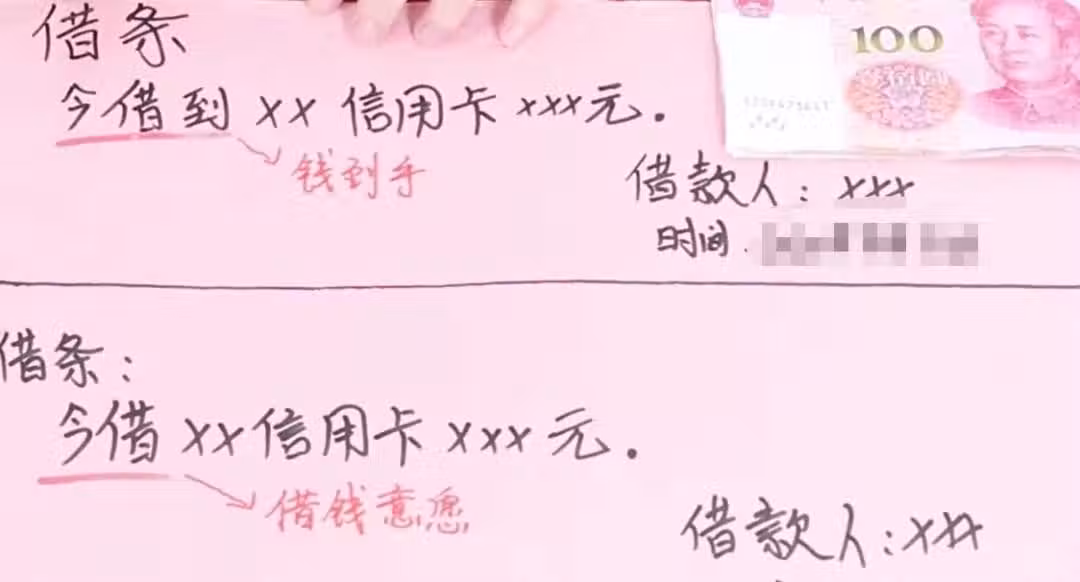 借条
今借到 xx 信用卡 xxx元.
钱到手
100
借款人: xxx
时间.
借条:
今借 xx 信用卡 xxx 元.
借钱意愿
借款人: xxx